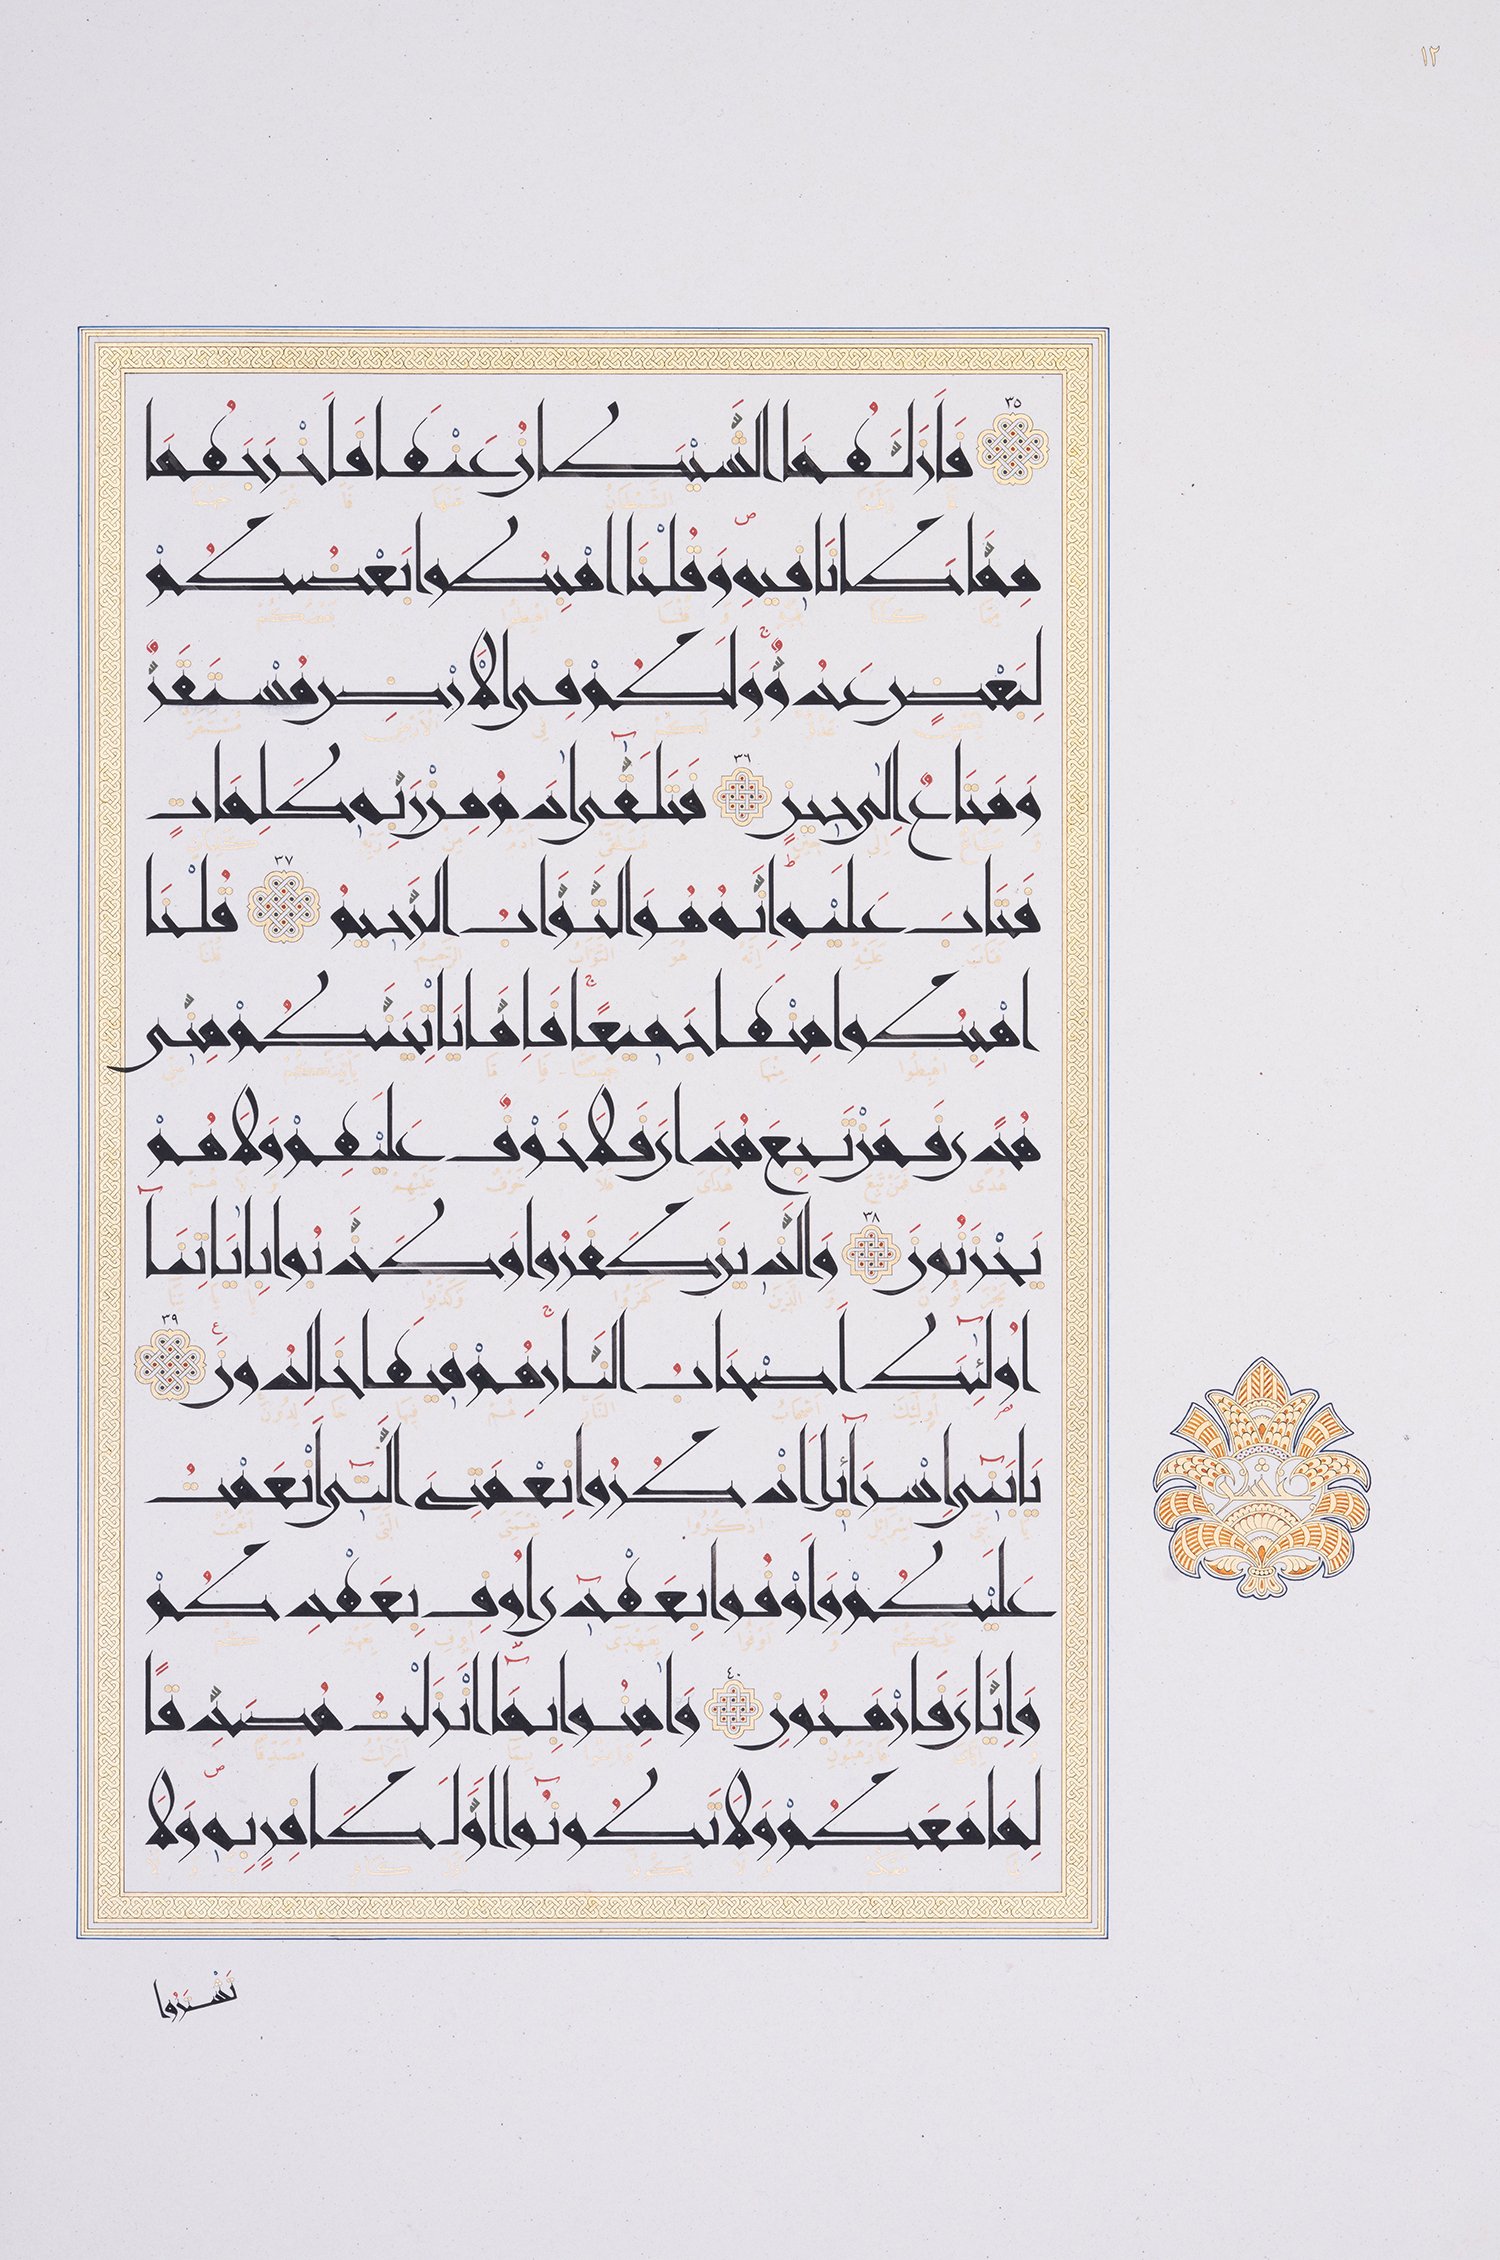 ١٢
٣٥ فَأَزَلَّهُمَا الشَّيْطَانُ عَنْهَا فَأَخْرَجَهُمَا
مِمَّا كَانَا فِيهِ ۖ وَقُلْنَا اهْبِطُوا بَعْضُكُمْ
لِبَعْضٍ عَدُوٌّ ۚ وَلَكُمْ فِي الْأَرْضِ مُسْتَقَرٌّ
وَمَتَاعٌ إِلَىٰ حِينٍ ٣٦ فَتَلَقَّىٰ آدَمُ مِنْ رَبِّهِ كَلِمَاتٍ
فَتَابَ عَلَيْهِ ۚ إِنَّهُ هُوَ التَّوَّابُ الرَّحِيمُ ٣٧ قُلْنَا
اهْبِطُوا مِنْهَا جَمِيعًا ۚ فَإِمَّا يَأْتِيَنَّكُمْ مِنِّي
هُدًى فَمَنْ تَبِعَ هُدَايَ فَلَا خَوْفٌ عَلَيْهِمْ وَلَا هُمْ
يَحْزَنُونَ ٣٨ وَالَّذِينَ كَفَرُوا وَكَذَّبُوا بِآيَاتِنَا
أُولَٰئِكَ أَصْحَابُ النَّارِ ۖ هُمْ فِيهَا خَالِدُونَ ٣٩
يَا بَنِي إِسْرَائِيلَ اذْكُرُوا نِعْمَتِيَ الَّتِي أَنْعَمْتُ
عَلَيْكُمْ وَأَوْفُوا بِعَهْدِي أُوفِ بِعَهْدِكُمْ
وَإِيَّايَ فَارْهَبُونِ ٤٠ وَآمِنُوا بِمَا أَنْزَلْتُ مُصَدِّقًا
لِمَا مَعَكُمْ وَلَا تَكُونُوا أَوَّلَ كَافِرٍ بِهِ ۖ وَلَا
تَشْتَرُوا